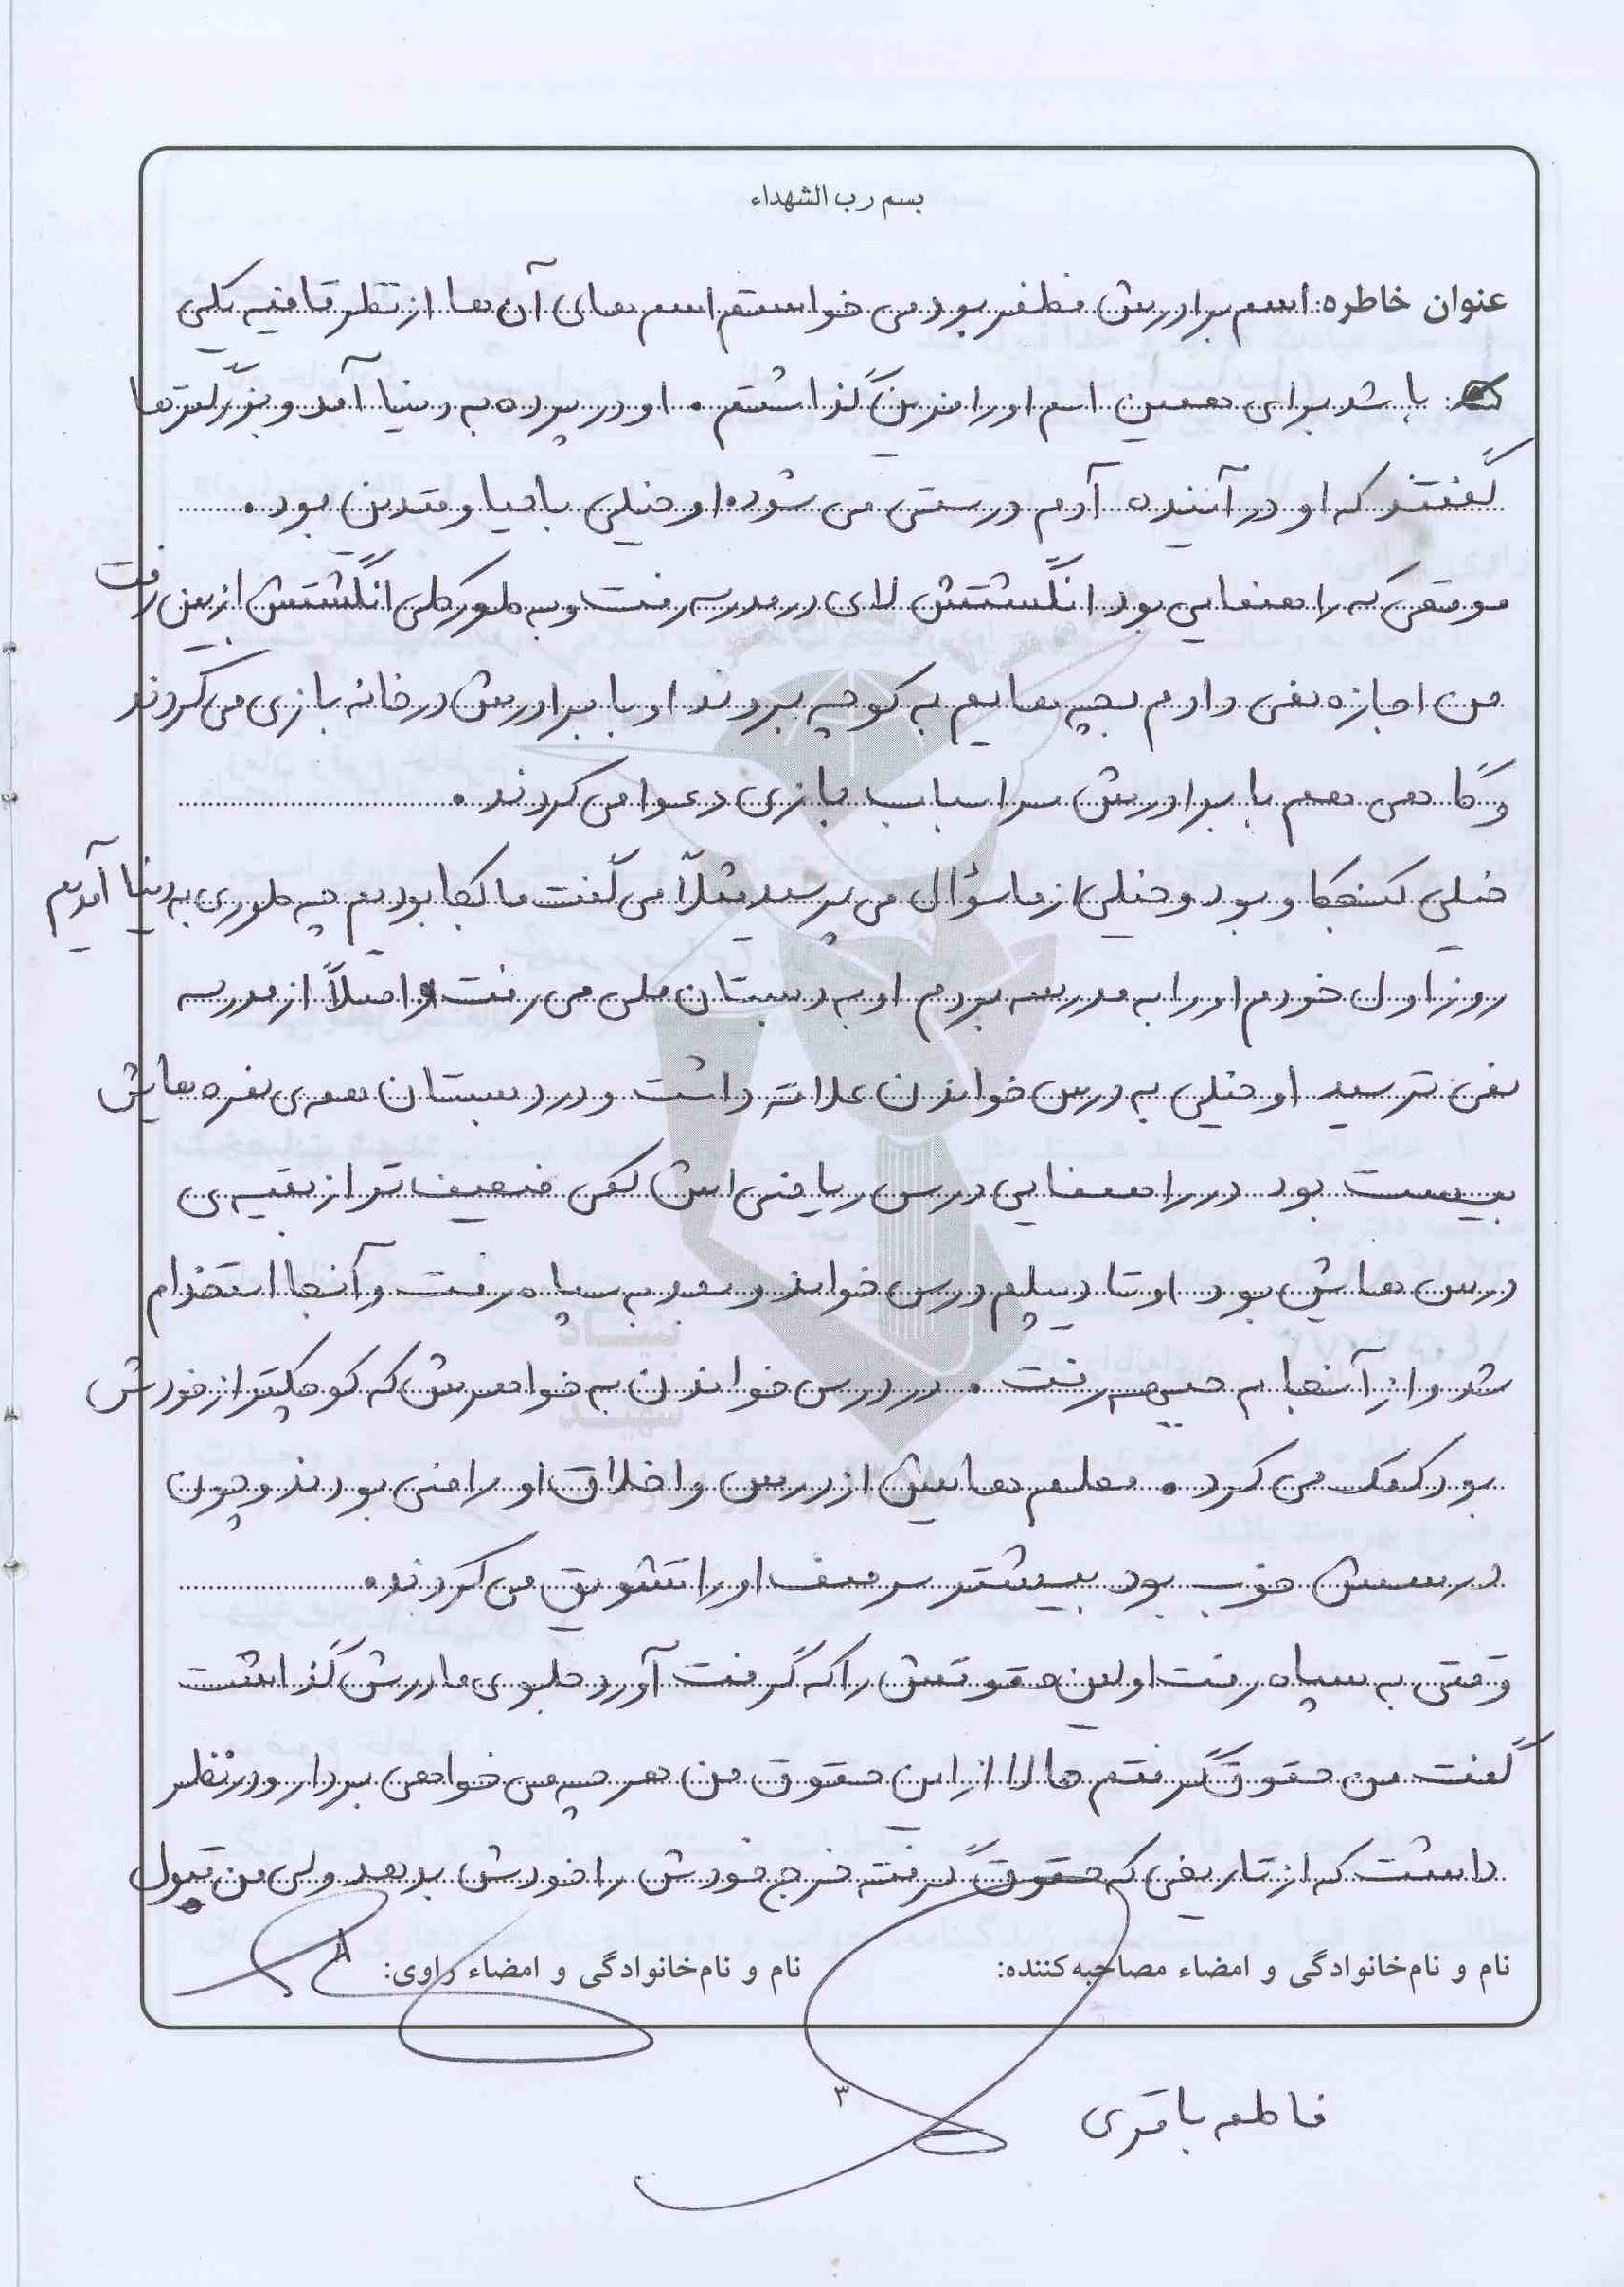 بسم رب الشهداء
عنوان خاطره: اسم برادرش مظفر بود می خواستم اسم های آن ها از نظر قافیه یکی
باشد برای همین اسم او را گذاشتم. او در پرده به دنیا آمد و بزرگترها
گفتند که او در آینده آدم درستی می شود. او خیلی باحیا و متدین بود.
موقعی که راهنمایی بود انگشتش لای در مدرسه رفت و به طور کلی انگشتش از بین رفت
من اجازه نمی دادم بچه هایم به کوچه بروند او با برادرش در خانه بازی می کردند
و گاهی هم با برادرش سر اسباب بازی دعوا می کردند.
خیلی کنجکاو بود و خیلی از ما سؤال می پرسید مثلاً می گفت ما کجا بودیم چه طوری به دنیا آمدیم
روز اول خودم او را به مدرسه بردم او به دبستان ملی می رفت و اصلاً از مدرسه
نمی ترسید او خیلی به درس خواندن علاقه داشت و در دبستان همه ی نمره هایش
بیست بود در راهنمایی درس ریاضی اش کمی ضعیف تر از بقیه ی
درس هایش بود او تا دیپلم درس خواند و بعد به سپاه رفت و آنجا استخدام
شد و از آنجا به جبهه رفت. در درس خواندن به خواهرش که کوچکتر از خودش
بود کمک می کرد. معلم هایش از درس و اخلاق او راضی بودند و چون
درسش خوب بود بیشتر سر صف او را تشویق می کردند.
وقتی به سپاه رفت اولین حقوقش را که گرفت آورد جلوی مادرش گذاشت
گفت من حقوق گرفتم حالا از این حقوق من هر چه می خواهی بردار و در نظر
داشت که از تاریخی که حقوق گرفته خرج خودش را خودش بدهد ولی من قبول
نام و نام خانوادگی و امضاء مصاحبه کننده: نام و نام خانوادگی و امضاء راوی:
فاطمه باقری
۳
بنیاد
شهید